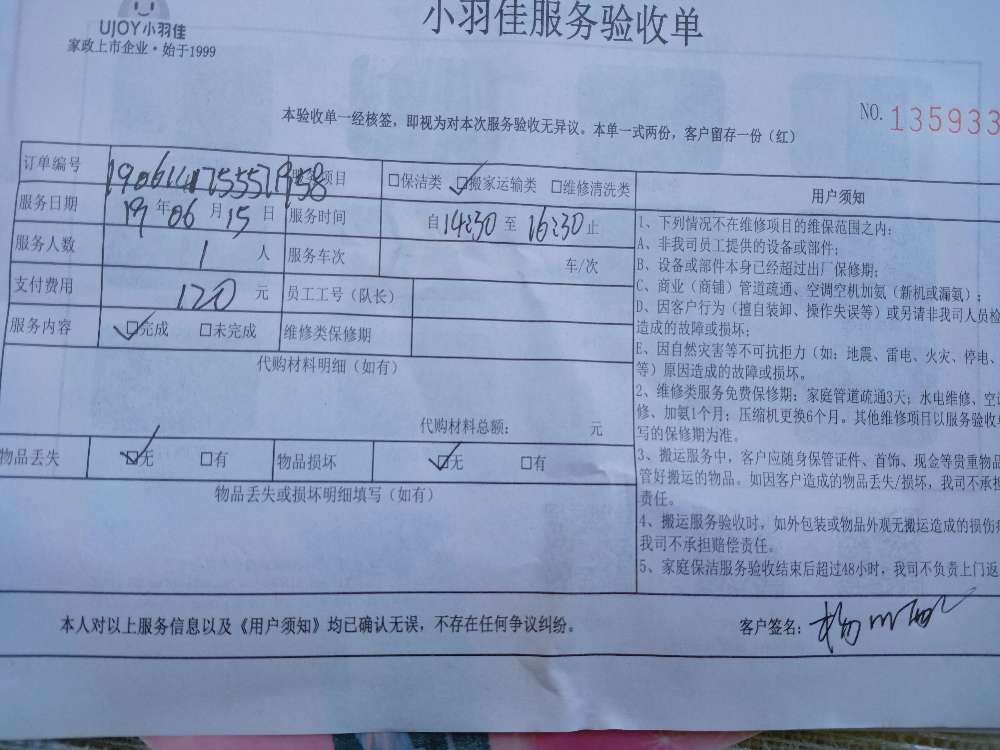 UJOY小羽佳
家政上市企业·始于1999
小羽佳服务验收单
本验收单一经核签，即视为对本次服务验收无异议。本单一式两份，客户留存一份（红）
NO. 135933
订单编号 项目 □保洁类 ☑搬家运输类 □维修清洗类
服务日期 19年06月15日 服务时间 自14:30至16:30止
服务人数 1人 服务车次 车/次
支付费用 120元 员工工号（队长）
服务内容 ☑完成 □未完成 维修类保修期
代购材料明细（如有）
代购材料总额： 元
物品丢失 ☑无 □有 物品损坏 ☑无 □有
物品丢失或损坏明细填写（如有）
用户须知
1、下列情况不在维修项目的维保范围之内：
A、非我司员工提供的设备或部件；
B、设备或部件本身已经超过出厂保修期；
C、商业（商铺）管道疏通、空调空机加氨（新机或漏氨）；
D、因客户行为（擅自装卸、操作失误等）或另请非我司人员检
造成的故障或损坏；
E、因自然灾害等不可抗拒力（如：地震、雷电、火灾、停电、
等）原因造成的故障或损坏。
2、维修类服务免费保修期：家庭管道疏通3天；水电维修、空调
修、加氨1个月；压缩机更换6个月。其他维修项目以服务验收单
写的保修期为准。
3、搬运服务中，客户应随身保管证件、首饰、现金等贵重物品
管好搬运的物品。如因客户造成的物品丢失/损坏，我司不承担
责任。
4、搬运服务验收时，如外包装或物品外观无搬运造成的损伤痕
我司不承担赔偿责任。
5、家庭保洁服务验收结束后超过48小时，我司不负责上门返
本人对以上服务信息以及《用户须知》均已确认无误，不存在任何争议纠纷。
客户签名：